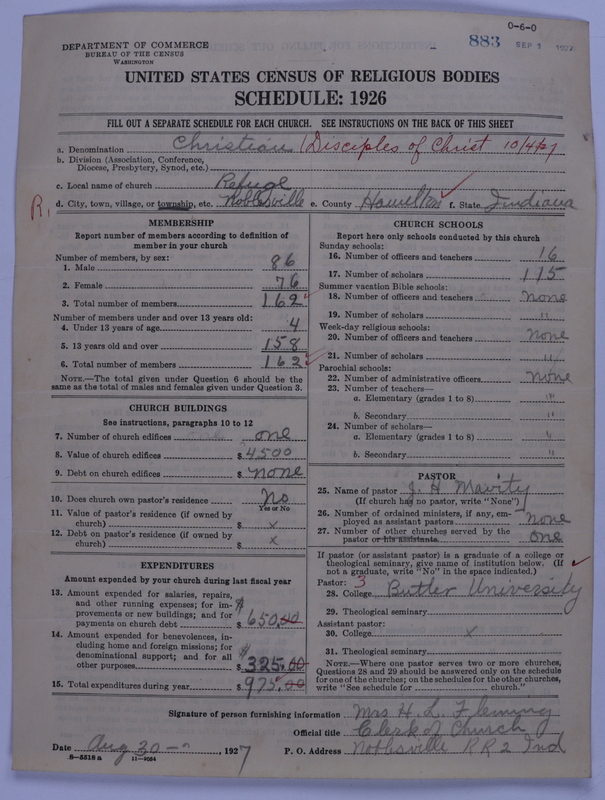 0-6-0
883 SEP 1
DEPARTMENT OF COMMERCE
BUREAU OF THE CENSUS
WASHINGTON
UNITED STATES CENSUS OF RELIGIOUS BODIES
SCHEDULE: 1926
FILL OUT A SEPARATE SCHEDULE FOR EACH CHURCH. SEE INSTRUCTIONS ON THE BACK OF THIS SHEET
a. Denomination Christian (Disciples of Christ 10/4/27
b. Division (Association, Conference,
Diocese, Presbytery, Synod, etc.)
c. Local name of church Refuge
R. d. City, town, village, or township, etc. Noblesville e. County Hamilton f. State Indiana
MEMBERSHIP
Report number of members according to definition of
member in your church
Number of members, by sex:
1. Male 86
2. Female 76
3. Total number of members 162
Number of members under and over 13 years old:
4. Under 13 years of age 4
5. 13 years old and over 158
6. Total number of members 162
NOTE.—The total given under Question 6 should be the
same as the total of males and females given under Question 3.
CHURCH BUILDINGS
See instructions, paragraphs 10 to 12
7. Number of church edifices one
8. Value of church edifices $ 4500
9. Debt on church edifices $ none
10. Does church own pastor's residence No
Yes or No
11. Value of pastor's residence (if owned by
church) $ x
12. Debt on pastor's residence (if owned by
church) $ x
EXPENDITURES
Amount expended by your church during last fiscal year
13. Amount expended for salaries, repairs,
and other running expenses; for im-
provements or new buildings; and for
payments on church debt $ 650.00
14. Amount expended for benevolences, in-
cluding home and foreign missions; for
denominational support; and for all
other purposes $ 325.00
15. Total expenditures during year $ 975.00
CHURCH SCHOOLS
Report here only schools conducted by this church
Sunday schools:
16. Number of officers and teachers 16
17. Number of scholars 115
Summer vacation Bible schools:
18. Number of officers and teachers none
19. Number of scholars "
Week-day religious schools:
20. Number of officers and teachers none
21. Number of scholars "
Parochial schools:
22. Number of administrative officers none
23. Number of teachers—
a. Elementary (grades 1 to 8) "
b. Secondary "
24. Number of scholars—
a. Elementary (grades 1 to 8) "
b. Secondary "
PASTOR
25. Name of pastor J. H. Mavity
(If church has no pastor, write "None")
26. Number of ordained ministers, if any, em-
ployed as assistant pastors none
27. Number of other churches served by the
pastor or his assistants one
If pastor (or assistant pastor) is a graduate of a college or
theological seminary, give name of institution below. (If
not a graduate, write "No" in the space indicated.)
Pastor: 3
28. College Butler University
29. Theological seminary
Assistant pastor:
30. College x
31. Theological seminary
NOTE.—Where one pastor serves two or more churches,
Questions 28 and 29 should be answered only on the schedule
for one of the churches; on the schedules for the other churches,
write "See schedule for church."
Signature of person furnishing information Mrs H. L. Fleming
Official title Clerk of Church
Date Aug 30 - , 1927 P. O. Address Noblesville RR2 Ind
8-5518 a 11-9054